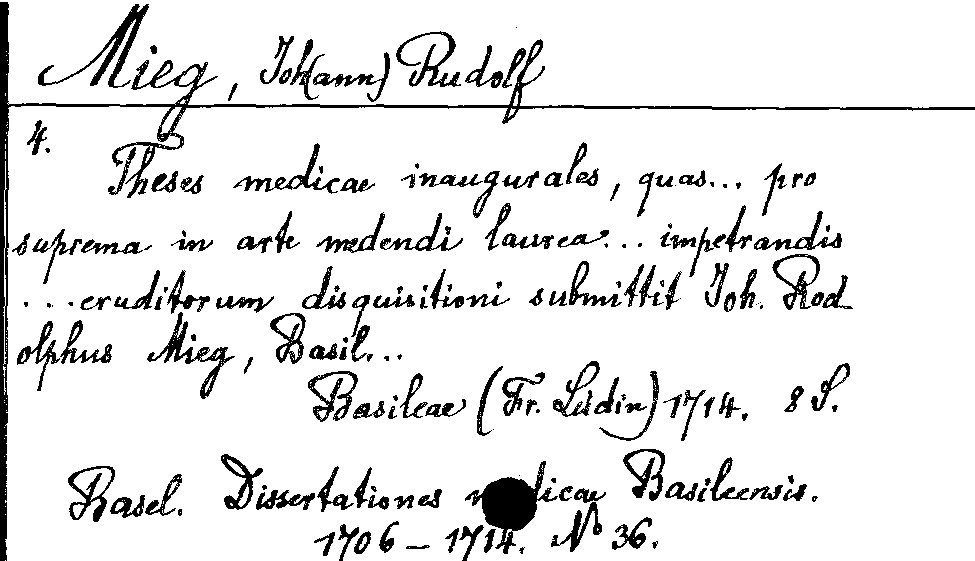 Mieg, Joh(ann) Rudolf
4.
Theses medicae inaugurales, quas... pro
suprema in arte medendi laurea... impetrandis
...eruditorum disquisitioni submittit Joh. Rod
olphus Mieg, Basil...
Basileae (Fr. Lüdin) 1714. 8 S.
Basel. Dissertationes medicae Basileensis.
1706 - 1714. No 36.